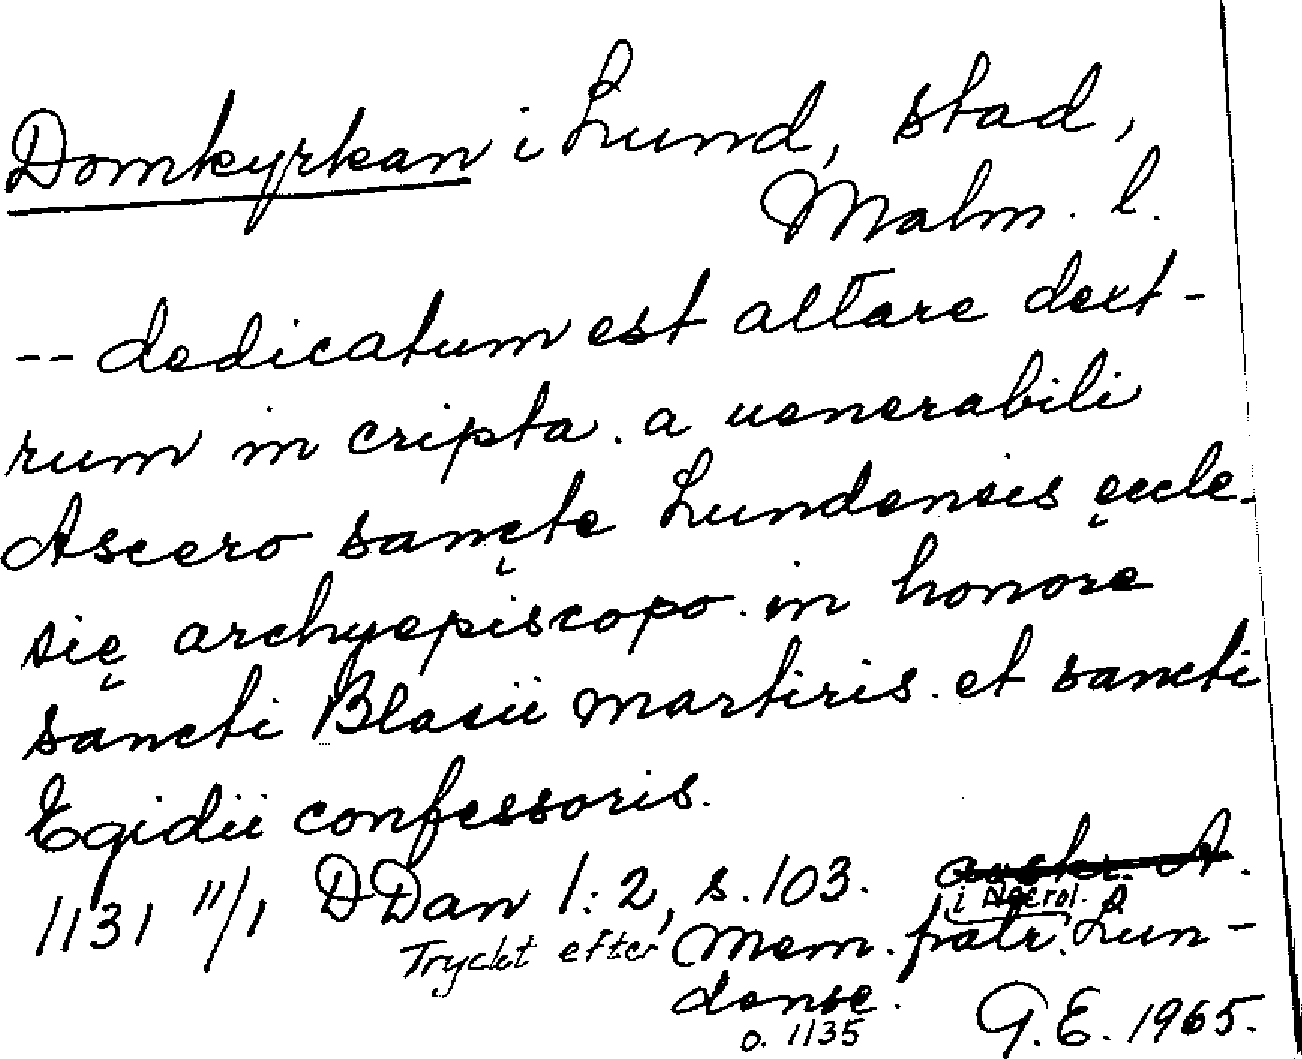 Domkyrkan i Lund, stad,
Malm. l.
-- dedicatum est altare dext-
rum in cripta. a uenerabili
Ascero sanctę Lundensis ęccle-
się archyepiscopo. in honore
sancti Blasii martiris. et sancti
Egidii confessoris.
1131 11/1 DDan 1:2, s. 103. avskr. A.
i Necrol.
Tryckt efter Mem. fratr. Lun-
dense.
o. 1135 G.E. 1965.